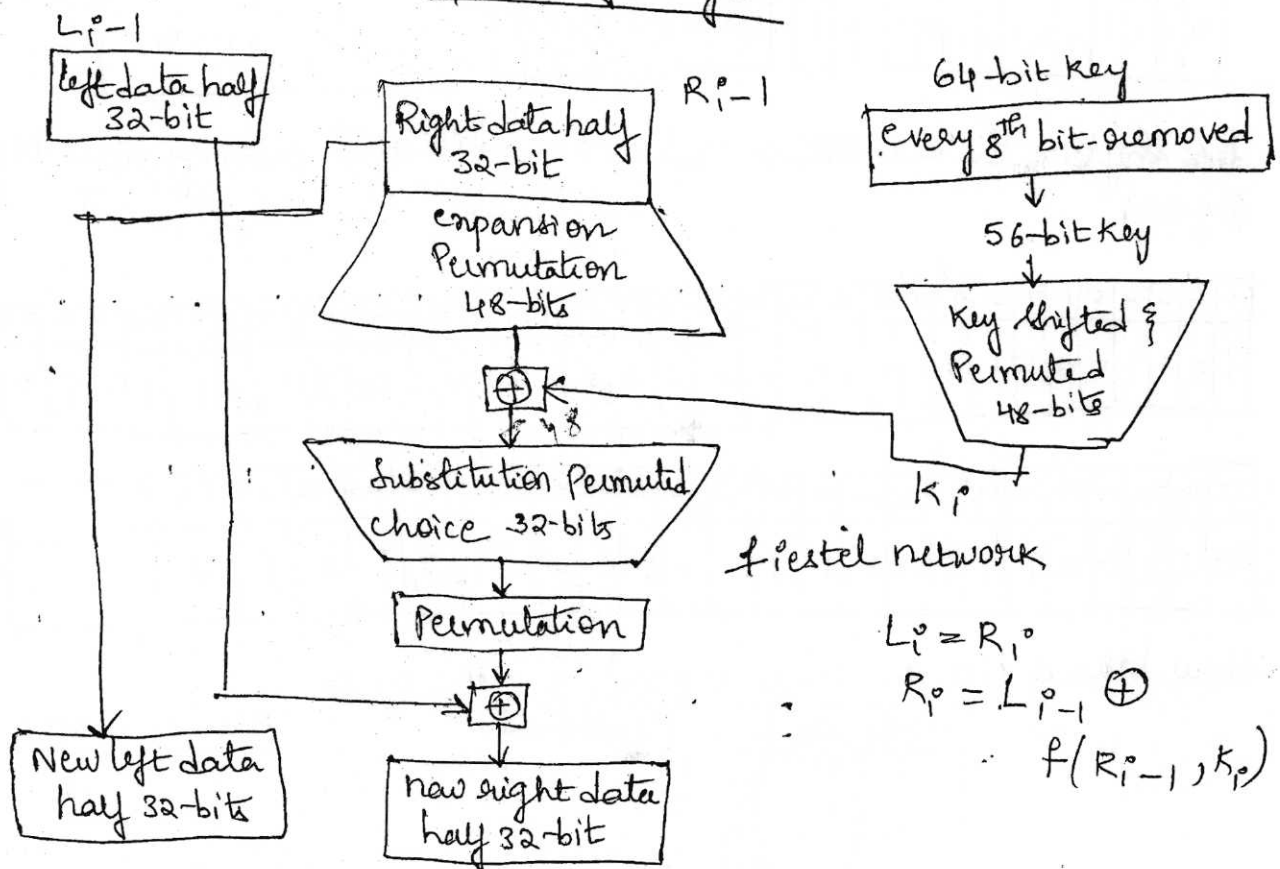 Li-1
left data half
32-bit
Right data half
32-bit
Ri-1
64-bit key
every 8th bit-removed
56-bit key
expansion
Permutation
48-bits
Key shifted &
Permuted
48-bits
⊕
48
Ki
Substitution Permuted
choice 32-bits
fiestel network
Permutation
Li = Ri
Ri = Li-1 ⊕
f(Ri-1, Ki)
⊕
New left data
half 32-bits
new right data
half 32-bit